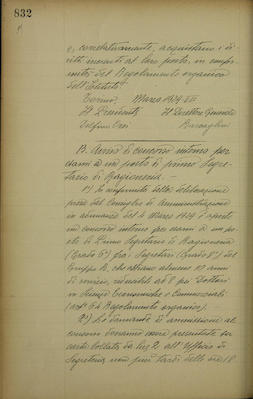 832
e, correlativamente, acquistano i di-
ritti inerenti al loro posto, in confor-
mità del Regolamento organico
dell'Istituto.
Torino, Marzo 1929 VII
Il Presidente Il Direttore Generale
B. Avviso di concorso interno per
esami a un posto di primo Segre-
tario di Ragioneria. —
1) In conformità della deliberazione
presa dal Consiglio di Amministrazione
in adunanza del 6 Marzo 1929 è aperto
un concorso interno per esami a un po-
sto di Primo Segretario di Ragioneria
(Grado 6°) fra i Segretari (Grado 8°) del
Gruppo B. che abbiano almeno 10 anni
di servizio, riducibili ad 8 per Dottori
in Scienze Economiche e Commerciali
(art° 63 Regolamento organico).
2) Le domande di ammissione al
concorso dovranno essere presentate su
carta bollata da lire 2 all'Ufficio di
Segreteria non più tardi delle ore 18